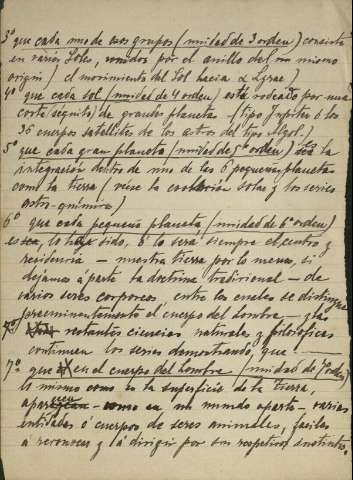 3º que cada uno de esos grupos (unidad de 3 orden) consista
en varios Soles, unidos por el anillo del mismo
origen (el movimiento del Sol hacia α Lyrae)
4º que cada sol (unidad de 4 orden) está rodeado por una
corte (séquito) de grandes planetas (tipo Jupiter ó los
36 cuerpos satélites de los astros del tipo Algol.)
5º que cada gran planeta (unidad de 5º orden) sea la
integración dentro de uno de los 6 pequeños planetas
como la tierra (vease la evolución solar y los series
astro-química)
6º que cada pequeño planeta (unidad de 6º orden)
es, lo ha sido, ó lo será siempre el centro y
residencia — nuestra tierra por lo menos, si
dejamos á parte la doctrina tradicional — de
varios seres corporeos entre los cuales se distingue
preeminentemente el cuerpo del hombre — y la
restantes ciencias naturales y filosóficas
continuen los series demostrando, que: —
7º que en el cuerpo del hombre (unidad de 7 orden)
lo mismo como en la superficie de la tierra,
aparecen — como en un mundo aparte — varias
entidades ó cuerpos de seres animales, faciles
á reconocer y á dirigir por sus respetivos instintos.